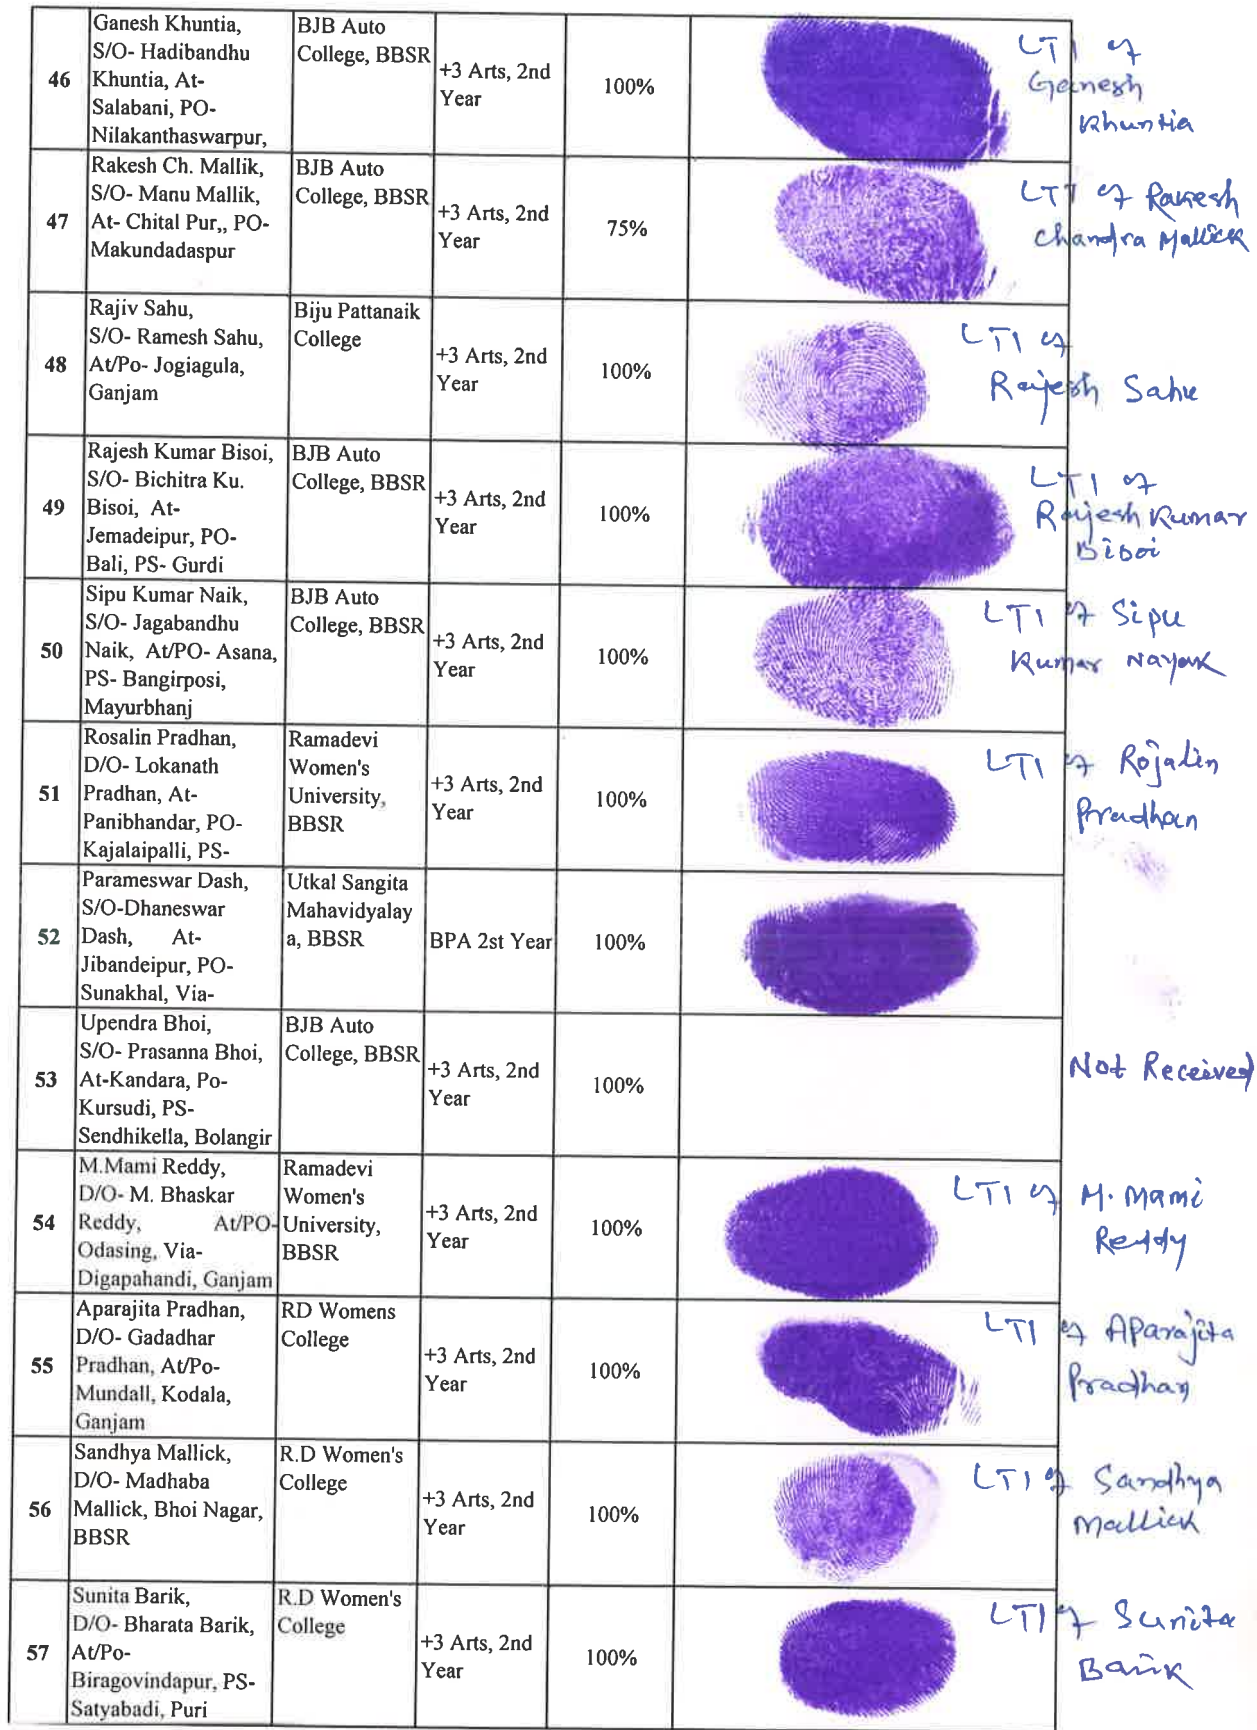 46
Ganesh Khuntia,
S/O- Hadibandhu
Khuntia, At-
Salabani, PO-
Nilakanthaswarpur,
BJB Auto
College, BBSR
+3 Arts, 2nd
Year
100%
LTI of
Ganesh
Khuntia
47
Rakesh Ch. Mallik,
S/O- Manu Mallik,
At- Chital Pur,, PO-
Makundadaspur
BJB Auto
College, BBSR
+3 Arts, 2nd
Year
75%
LTI of Rakesh
Chandra Mallick
48
Rajiv Sahu,
S/O- Ramesh Sahu,
At/Po- Jogiagula,
Ganjam
Biju Pattanaik
College
+3 Arts, 2nd
Year
100%
LTI of
Rajesh Sahu
49
Rajesh Kumar Bisoi,
S/O- Bichitra Ku.
Bisoi, At-
Jemadeipur, PO-
Bali, PS- Gurdi
BJB Auto
College, BBSR
+3 Arts, 2nd
Year
100%
LTI of
Rajesh Kumar
Bisoi
50
Sipu Kumar Naik,
S/O- Jagabandhu
Naik, At/PO- Asana,
PS- Bangirposi,
Mayurbhanj
BJB Auto
College, BBSR
+3 Arts, 2nd
Year
100%
LTI of Sipu
Kumar Nayak
51
Rosalin Pradhan,
D/O- Lokanath
Pradhan, At-
Panibhandar, PO-
Kajalaipalli, PS-
Ramadevi
Women's
University,
BBSR
+3 Arts, 2nd
Year
100%
LTI of Rojalin
Pradhan
52
Parameswar Dash,
S/O-Dhaneswar
Dash, At-
Jibandeipur, PO-
Sunakhal, Via-
Utkal Sangita
Mahavidyalay
a, BBSR
BPA 2st Year
100%
53
Upendra Bhoi,
S/O- Prasanna Bhoi,
At-Kandara, Po-
Kursudi, PS-
Sendhikella, Bolangir
BJB Auto
College, BBSR
+3 Arts, 2nd
Year
100%
Not Received
54
M.Mami Reddy,
D/O- M. Bhaskar
Reddy, At/PO-
Odasing, Via-
Digapahandi, Ganjam
Ramadevi
Women's
University,
BBSR
+3 Arts, 2nd
Year
100%
LTI of M. Mami
Reddy
55
Aparajita Pradhan,
D/O- Gadadhar
Pradhan, At/Po-
Mundall, Kodala,
Ganjam
RD Womens
College
+3 Arts, 2nd
Year
100%
LTI of Aparajita
Pradhan
56
Sandhya Mallick,
D/O- Madhaba
Mallick, Bhoi Nagar,
BBSR
R.D Women's
College
+3 Arts, 2nd
Year
100%
LTI of Sandhya
Mallick
57
Sunita Barik,
D/O- Bharata Barik,
At/Po-
Biragovindapur, PS-
Satyabadi, Puri
R.D Women's
College
+3 Arts, 2nd
Year
100%
LTI of Sunita
Barik